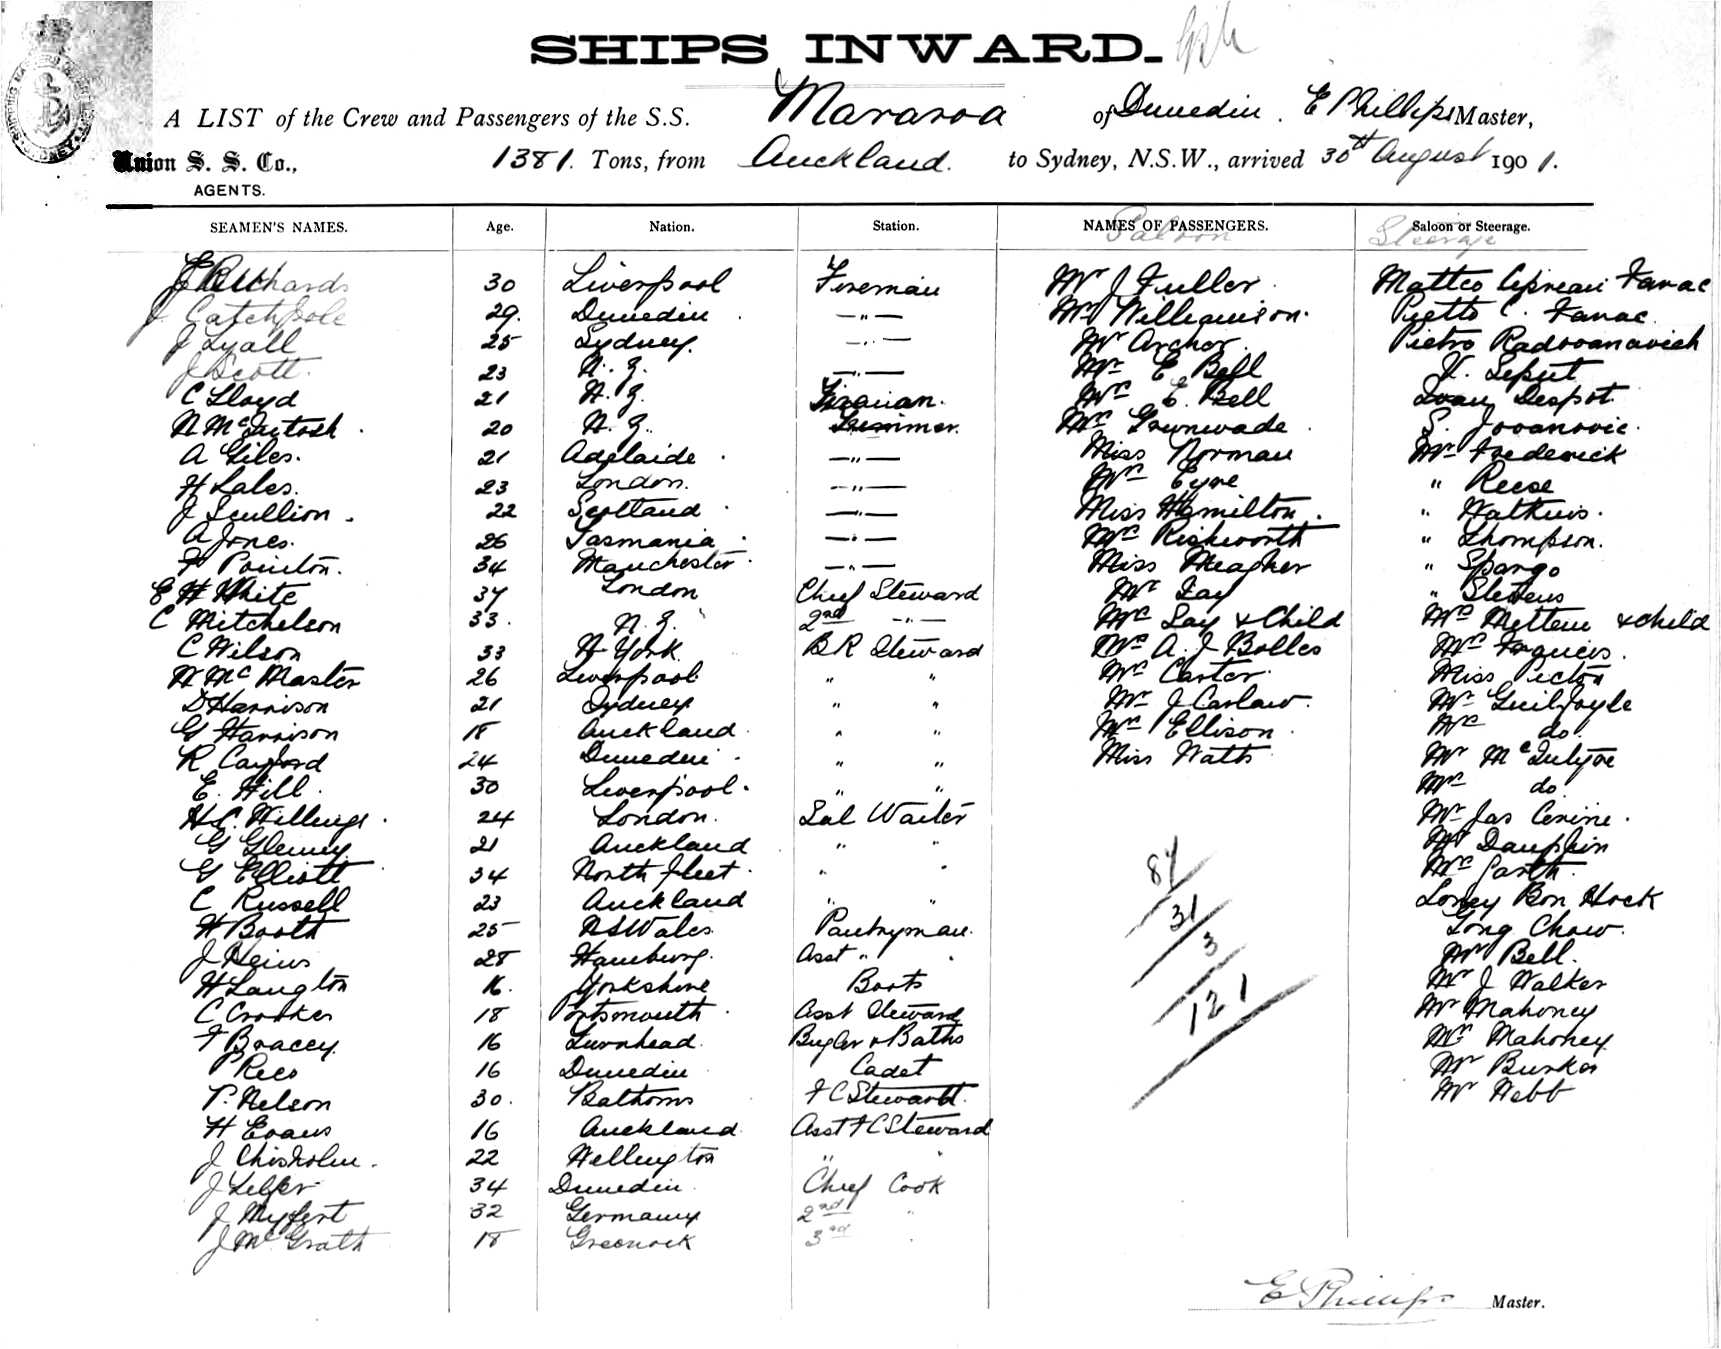 SHIPS INWARD.
A LIST of the Crew and Passengers of the S.S. Mararoa of Dunedin. E Phillips Master,
Union S. S. Co., 1381. Tons, from Auckland. to Sydney, N.S.W., arrived 30th August 1901.
AGENTS.
SEAMEN'S NAMES. Age. Nation. Station. NAMES OF PASSENGERS. Saloon or Steerage.
Saloon Steerage
Richards 30 Liverpool Fireman Mr J Fuller
J Catchpole 29. Dunedin — " — Pietto C. Fanac
J Lyall 25 Sydney. — " — Mr Archer. Pietro Radovanavich
J Scott. 23 N. Z. — " — Mr E Bell V. Seput
C Lloyd 21 N. Z. Fireman. Mrs E. Bell Ivan Despot
N McIntosh. 20 N. Z. Trimmer. S. Jovanovic.
A Giles. 21 Adelaide. — " — Miss Norman Mr Frederick
H Lales. 23 London. — " — Eyre " Reese
J Scullion. 22 Scotland — " — Miss Hamilton. " Watkins.
A Jones. 26 Tasmania. — " — Mrs Rishworth " Thompson.
F Pointon. 34 Manchester. — " — Miss Meagher " Spargo
E H White 37 London Chief Steward " Stevens
C Mitchelson 33. N. Z. 2nd — " — & Child & child
C Wilson 33 N York B R Steward Mrs A. J Bolles Mrs Francis.
N McMaster 26 Liverpool " " Mrs Carter. Miss Picton
D Harrison 21 Sydney " " Mr J Carlaw. Mr Guilfoyle
G Harrison 18 Auckland. " " Mrs Ellison. Mrs do.
R Cayford 24 Dunedin. " " Miss Watts Mr McIntyre
E. Hill. 30 Liverpool. " " Mrs do.
H C. Willings. 24 London. Sal Waiter Mr Jas
G Glenny 21 Auckland " " Mr Dauphin
G Elliott 34 North fleet " " Mrs Garth.
C Russell 23 Auckland " " Bon Hock
H Booth 25 N S Wales Pantryman. Long Chow.
J Heins 28 Hamburg. Asst " Mr Bell.
H Langton 16. Yorkshire Boots Mr J Walker
C Crooker 18 Portsmouth. Asst Steward Mr Mahoney
F Bracey. 16 Bugler & Baths Mrs Mahoney
P Rees 16 Dunedin Cadet Mr Burke
P. Nelson 30. F C Steward. Mr Webb
H Evans 16 Auckland Asst F C Steward
J Chisholm. 22 Wellington " "
J 34 Dunedin Chief Cook
J 32 Germany 2nd "
J McGrath 18 Greenock 3rd "
87
31
3
121
E Phillips Master.